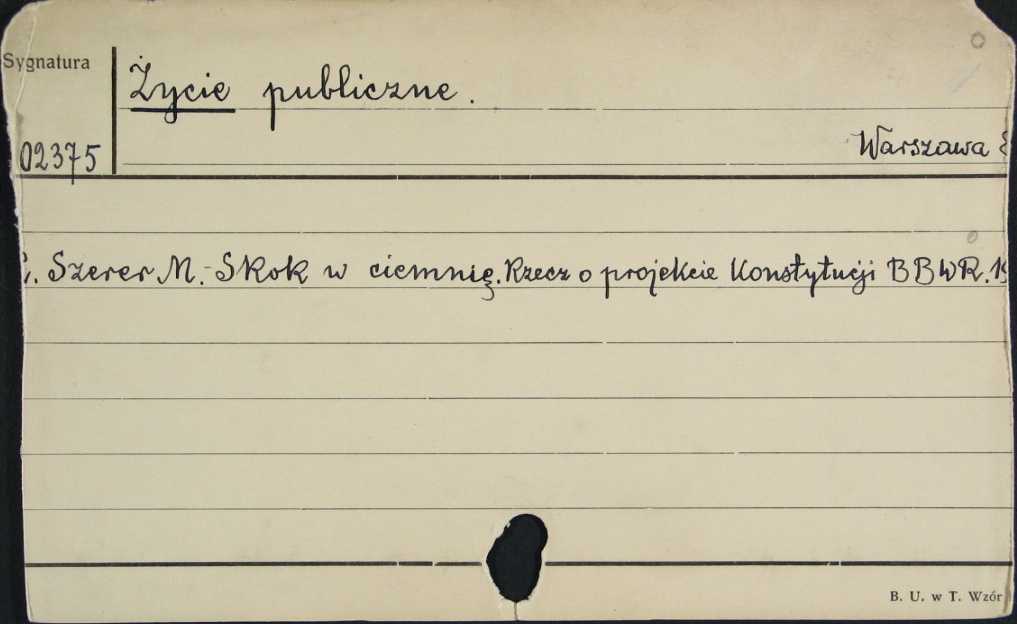 Sygnatura
Życie publiczne.
02375
Warszawa
Szerer M. - Skok w ciemnię. Rzecz o projekcie Konstytucji BBWR.
B. U. w T. Wzór